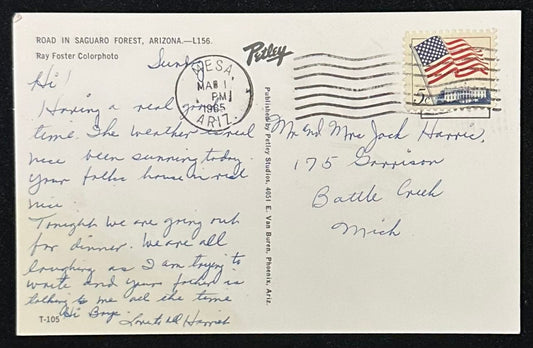 ROAD IN SAGUARO FOREST, ARIZONA.—L156.
Ray Foster Colorphoto
Sunday
Hi!
Having a real good
time. The weather is real
nice been sunning today.
Your folks house is real
nice.
Tonight we are going out
for dinner. We are all
laughing as I am trying to
write and your father is
talking to me all the time
Hi Boys.
T-105
Petley
Published by Petley Studios, 4051 E. Van Buren, Phoenix, Ariz.
MESA,
MAR 1
PM
1965
ARIZ.
5c
Mr. and Mrs Jack Harris,
175 Garrison
Battle Creek
Mich